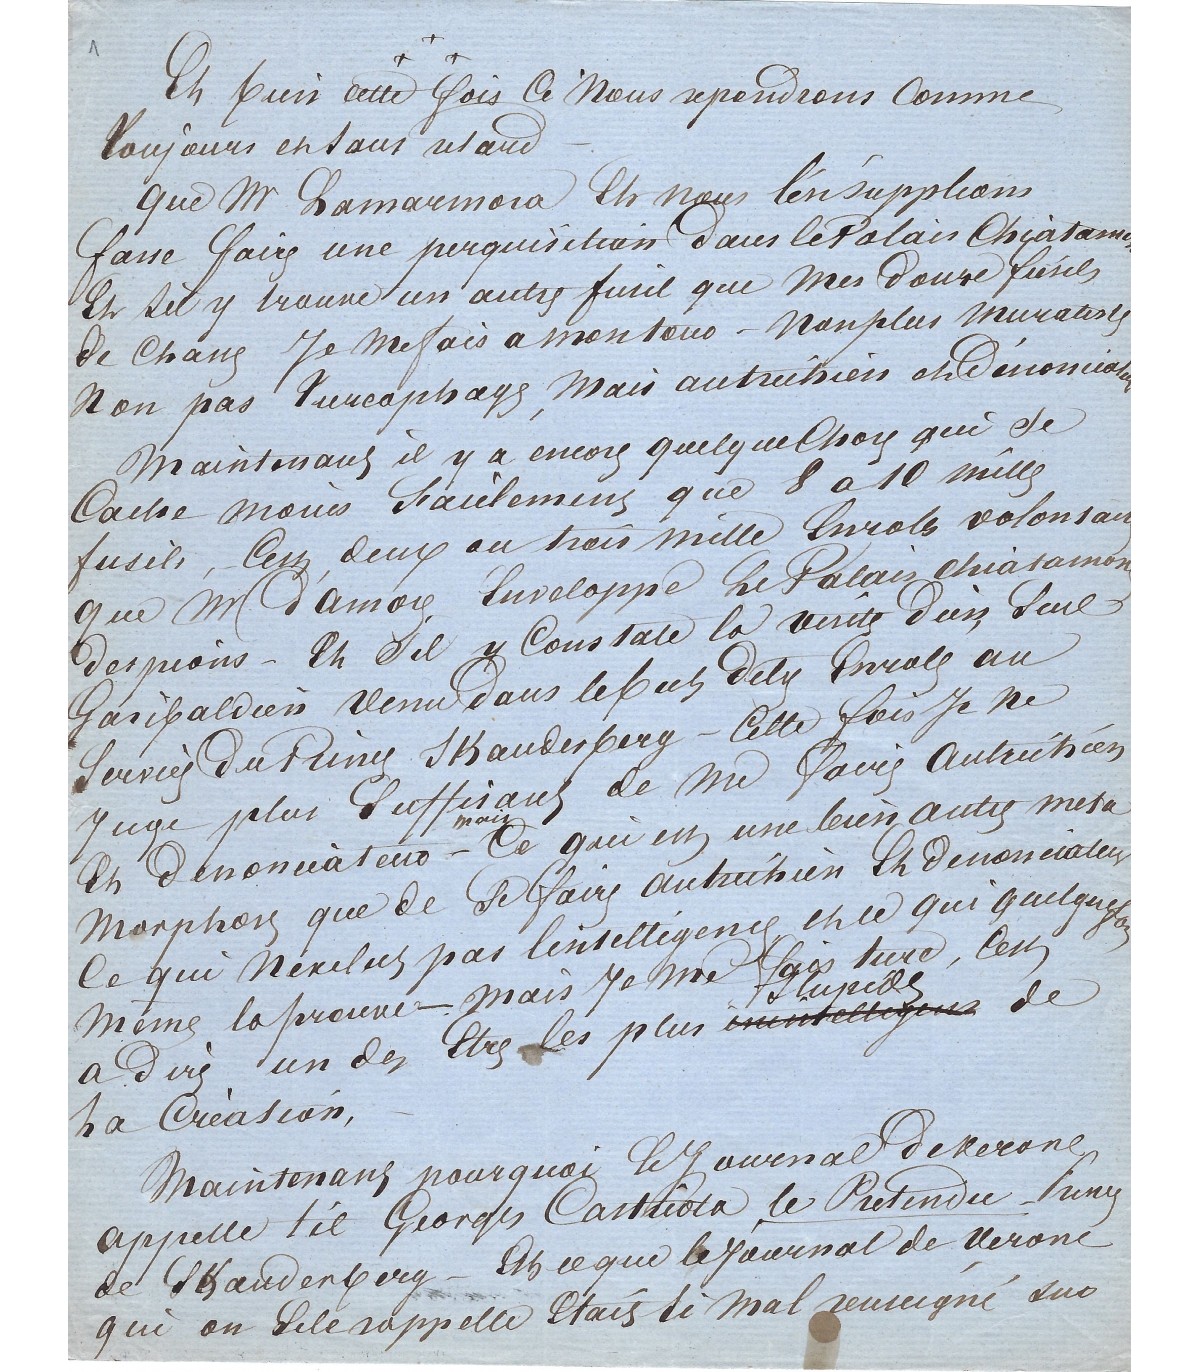 1
Eh bien cette fois ci nous repondrons comme
toujours et sans retard –
que Mr Lamarmora Et nous l'en supplions
fasse faire une perquisition dans le Palais Chiatamone
Et s'il y trouve un autre fusil que mes douze fusils
de chasse Je me fais a mon tour – non plus muratiste
Non pas turcophage, mais autrichien et dénonciateur
Maintenant il y a encore quelque chose qui se
Cache moins facilement que 8 a 10 mille
fusils, C'est deux ou trois mille Enrolés volontaires
que Mr d'Amore Enveloppe Le Palais Chiatamone
d'espions – Et s'il y Constate la venue d'un Seul
Garibaldien venu dans le but d'etre Enrolé au
Service Du Prince Skanderberg – Cette fois Je ne
Juge plus Suffisant de me faire Autrichien
Et dénonciateur – mais Ce qui est une bien autre meta
morphose que de se faire autrichien Et denonciateur
Ce qui n'exclut pas l'intelligence et ce qui quelquefois
même la prouve – mais Je me fais turc, C'est
a Dire un des Etres les plus stupides inintelligens de
La Création, –
Maintenant pourquoi le Journal de Verone
appelle t'il Georges Castriota le Pretendu Prince
de Skanderberg – Est ce que le Journal de Verone
qui on se le rappelle Etait si mal renseigné sur